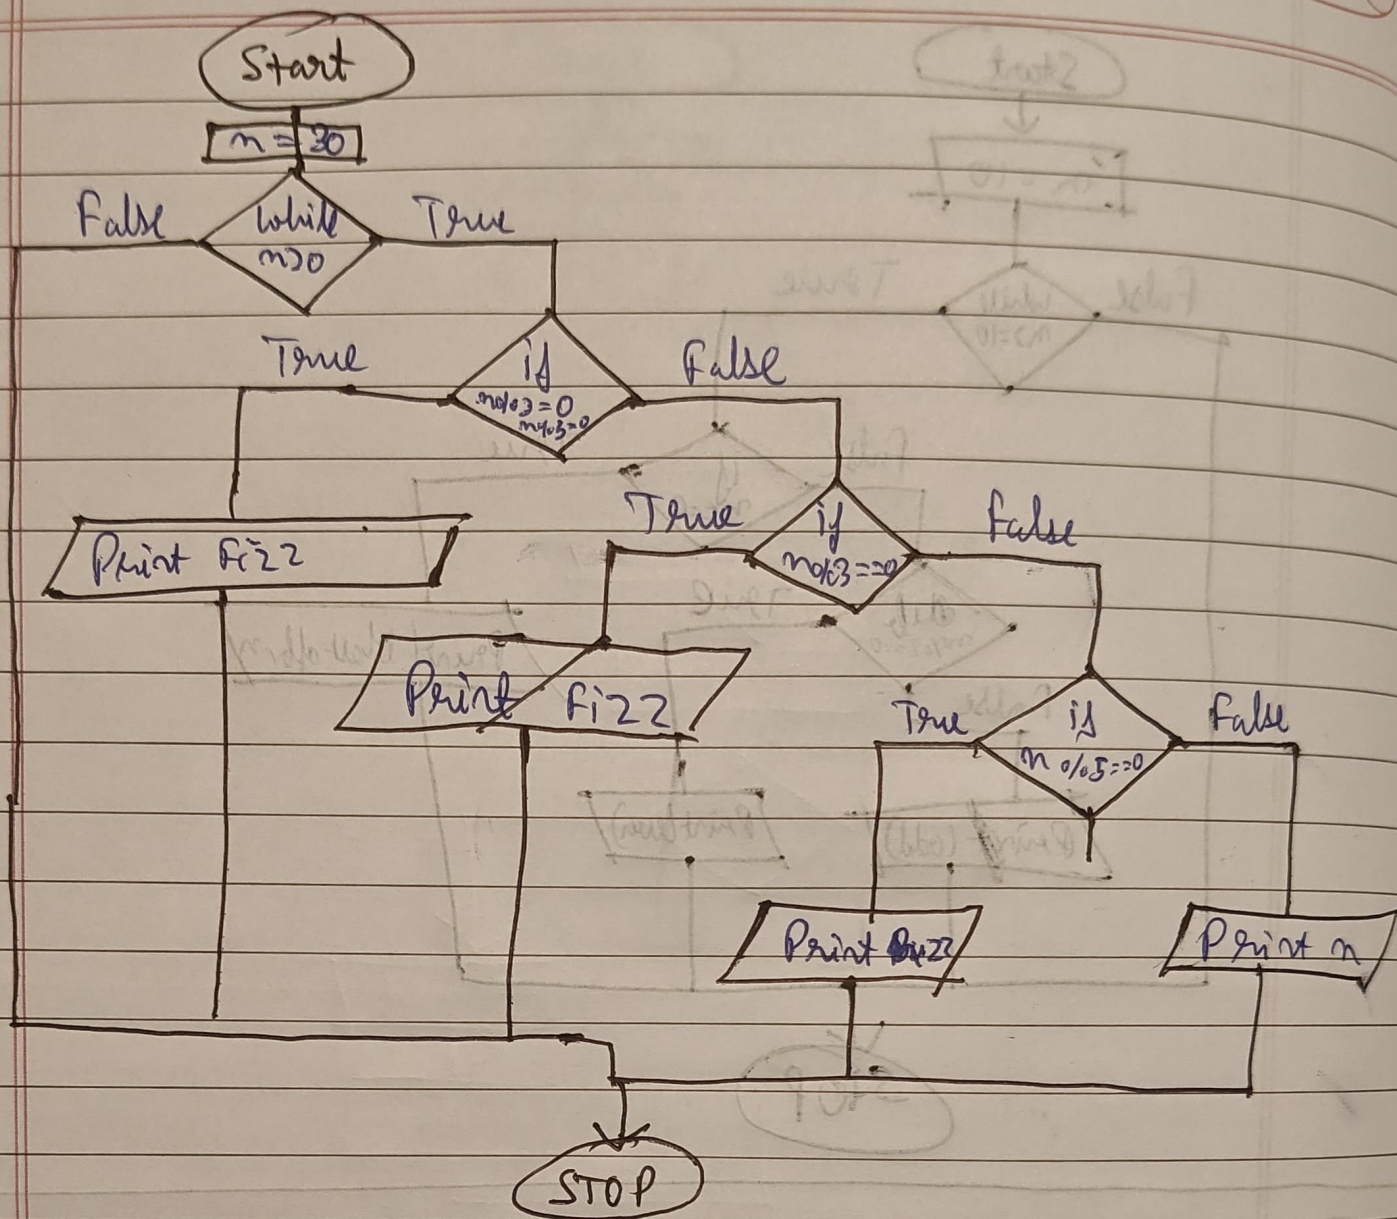 Start
n = 30
False
while
n>0
True
True
if
n%3=0
n%5=0
False
Print Fizz
True
if
n%3==0
False
Print Fizz
True
if
n%5==0
False
Print Buzz
Print n
STOP